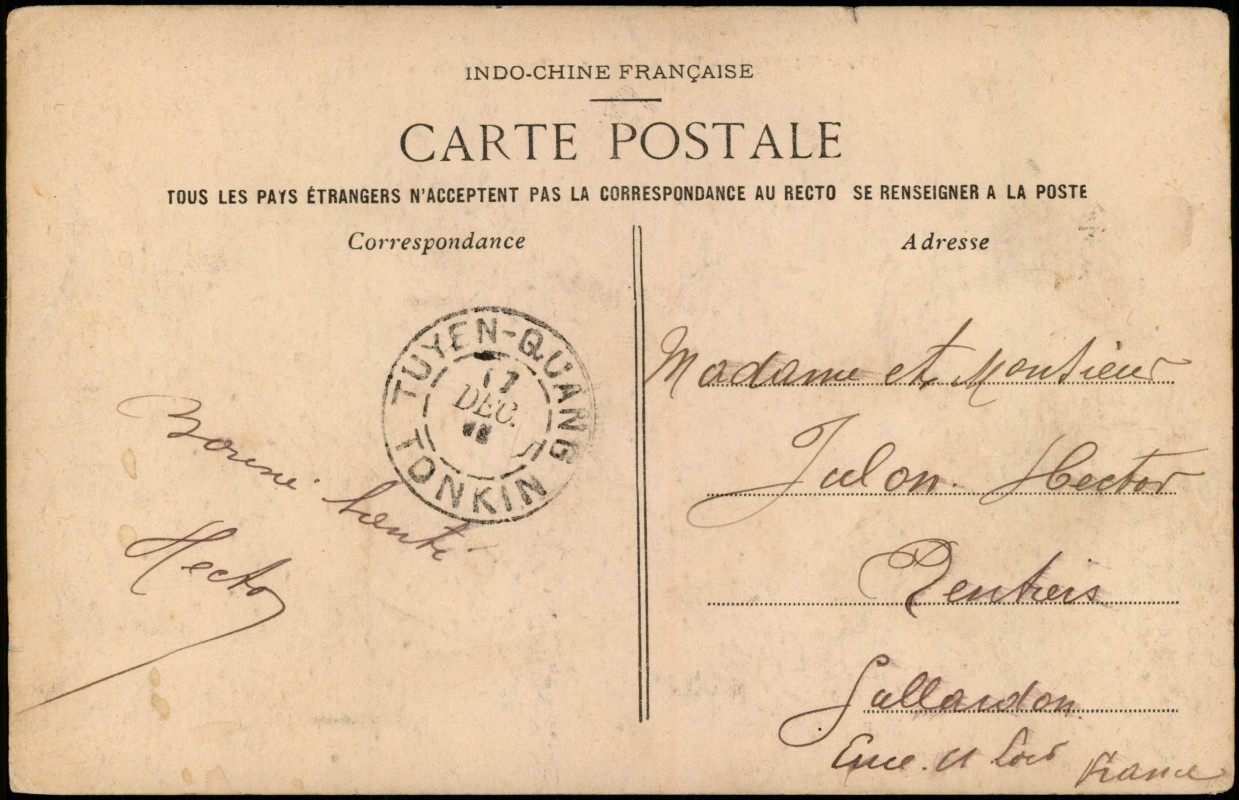 INDO-CHINE FRANÇAISE
CARTE POSTALE
TOUS LES PAYS ÉTRANGERS N'ACCEPTENT PAS LA CORRESPONDANCE AU RECTO SE RENSEIGNER A LA POSTE
Correspondance
Bonne Santé
Hector
TUYEN-QUANG
17
DEC.
TONKIN
Adresse
Madame et Monsieur
Julon Hector
Rentiers
Gallardon
Eure et Loir France